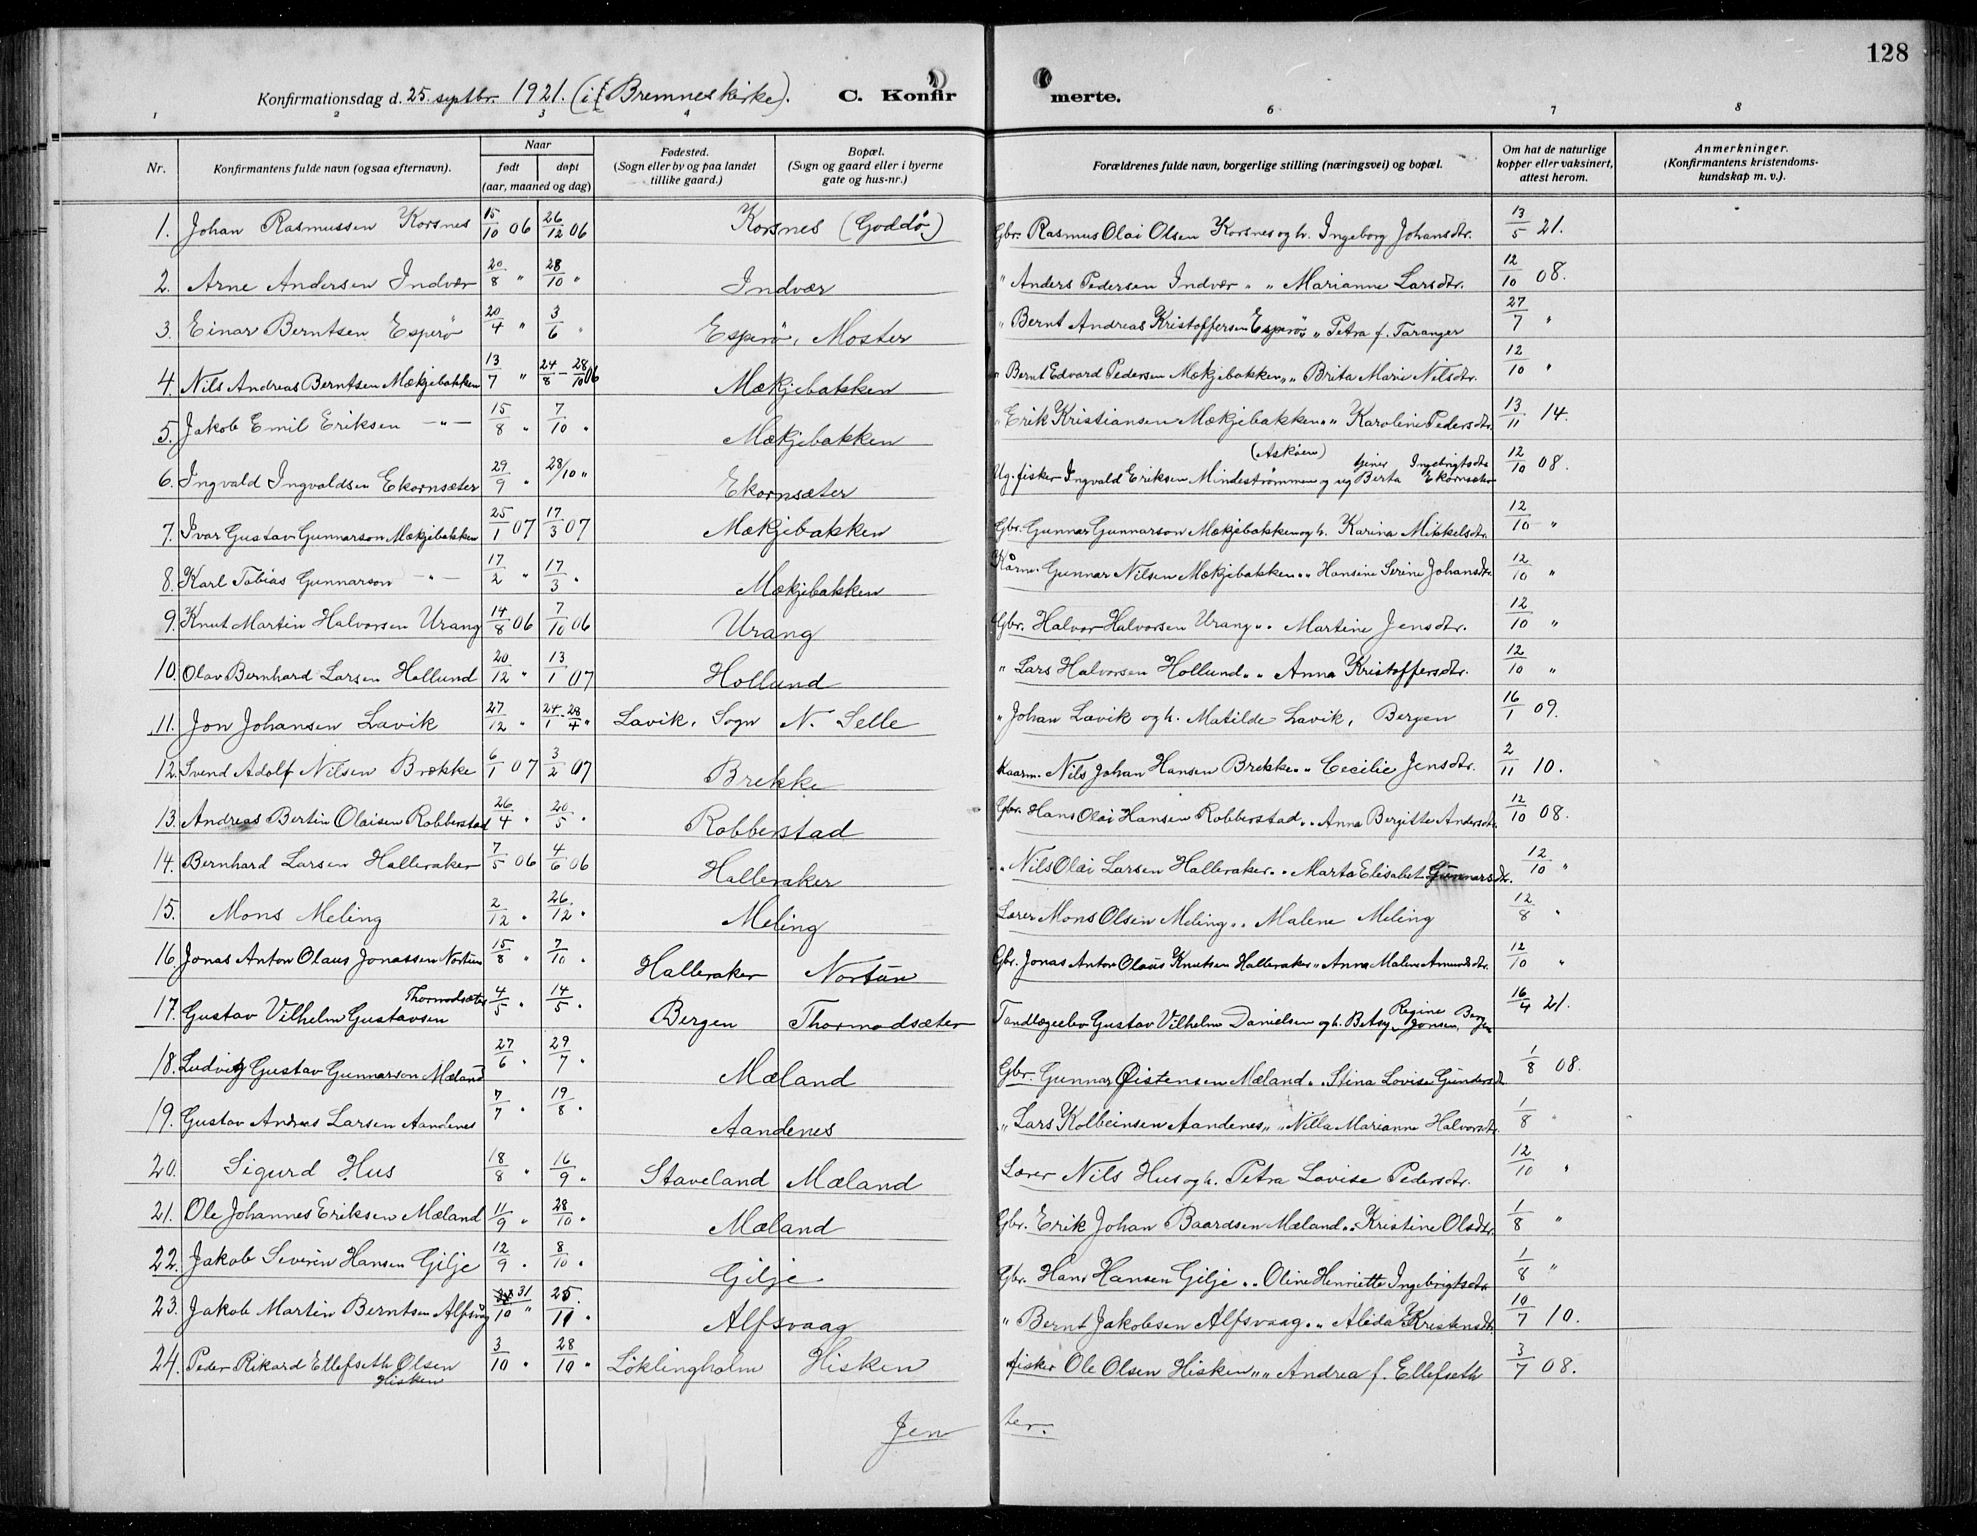 128
Konfirmationsdag d. 25. septbr. 1921. (i Bremnes kirke). C. Konfirmerte.
1 2 3 4 6 7 8
Nr. Konfirmantens fulde navn (ogsaa efternavn). Naar født døpt (aar, maaned og dag) Fødested. (Sogn eller by og paa landet tillike gaard.) Bopæl. (Sogn og gaard eller i byerne gate og hus-nr.) Forældrenes fulde navn, borgerlige stilling (næringsvei) og bopæl. Om hat de naturlige kopper eller vaksinert, attest herom. Anmerkninger. (Konfirmantens kristendomskundskap m. v.).
1. Johan Rasmussen Korsnes 15/10 06 26/12 06 Korsnes (Goddø) Gbr. Rasmus Olai Olsen Korsnes og h. Ingeborg Johansdtr. 13/5 21.
2. Arne Andersen Indvær 20/8 " 28/10 " Indvær " Anders Pedersen Indvær " " Marianne Larsdtr. 12/10 08.
3. Einar Berntsen Esperø 20/4 " 3/6 " Esperø, Moster " Bernt Andreas Kristoffersen Esperø " " Petra f. Taranger 27/7 "
4. Nils Andreas Berntsen Mækjebakken 13/7 " 24/8 - 28/10 06 Mækjebakken " Bernt Edvard Pedersen Mækjebakken " " Brita Marie Nilsdtr. 12/10 "
5. Jakob Emil Eriksen — " — 15/8 " 7/10 " Mækjebakken " Erik Kristiansen Mækjebakken " " Karoline Pedersdtr. 13/11 14.
6. Ingvald Ingvaldsen Ekornsæter 29/9 " 28/10 " Ekornsæter Ug. fisker Ingvald Eriksen Mindestrømmen (Askøen) og ug. Berta Ingebrigtsdtr. Ekornsæter 12/10 08.
7. Ivar Gustav Gunnarson Mækjebakken 25/1 07 17/3 07 Mækjebakken Gbr. Gunnar Gunnarson Mækjebakken og h. Karina Mikkelsdtr. 12/10 "
8. Karl Tobias Gunnarson — " — 17/2 " 17/3 " Mækjebakken Kårm. Gunnar Nilsen Mækjebakken " " Hansine Serine Johansdtr. 12/10 "
9. Knut Martin Halvorsen Urang 14/8 06 7/10 06 Urang Gbr. Halvor Halvorsen Urang " " Martine Jensdtr. 12/10 "
10. Olav Bernhard Larsen Hollund 20/12 " 13/1 07 Hollund " Lars Halvorsen Hollund " " Anna Kristoffersdtr. 12/10 "
11. Jon Johansen Lavik 27/12 " 24/1 - 28/4 " Lavik, Sogn N. Selle " Johan Lavik og h. Matilde Lavik, Bergen 16/1 09.
12. Svend Adolf Nilsen Brække 6/1 07 3/2 07 Brekke Kaarm. Nils Johan Hansen Brekke " " Cecilie Jensdtr. 2/11 10.
13. Andreas Bertin Olaisen Robberstad 26/4 " 20/5 " Robberstad Gbr. Hans Olai Hansen Robberstad " " Anna Bergitte Andersdtr. 12/10 08.
14. Bernhard Larsen Halleraker 7/5 06 4/6 06 Halleraker " Nils Olai Larsen Halleraker " " Marta Elisabet Gunnarsdtr. 12/10 "
15. Mons Meling 2/12 " 26/12 " Meling Lærer Mons Olsen Meling " " Malene Meling 12/8 "
16. Jonas Anton Olaus Jonassen Nortun 15/8 " 7/10 " Halleraker Nortun Gbr. Jonas Anton Olaus Knutsen Halleraker " Anna Malene Amundsdtr. 12/10 "
17. Gustav Vilhelm Gustavsen Thormodsæter 4/5 " 14/5 " Bergen Thormodsæter Tandlægeelev Gustav Vilhelm Danielsen og h. Betsy Regine Jonsen, Bergen 16/4 21.
18. Ludvig Gustav Gunnarson Mæland 27/6 " 29/7 " Mæland Gbr. Gunnar Øistensen Mæland " Stina Lovise Gundersdtr. 1/8 08.
19. Gustav Andreas Larsen Aandenes 7/7 " 19/8 " Aandenes " Lars Kolbeinsen Aandenes " " Nilla Marianne Halvorsdtr. 1/8 "
20. Sigurd Hus 18/8 " 16/9 " Staveland Mæland Lærer Nils Hus og h. Petra Lovise Pedersdtr. 12/10 "
21. Ole Johannes Eriksen Mæland 11/9 " 28/10 " Mæland Gbr. Erik Johan Baardsen Mæland " " Kristine Olsdtr. 1/8 "
22. Jakob Severin Hansen Gilje 12/9 " 8/10 " Gilje Gbr. Hans Hansen Gilje " " Oline Henriette Ingebrigtsdtr. 1/8 "
23. Jakob Martin Berntsen Alfsvåg 31/10 " 25/11 " Alfsvaag " Bernt Jakobsen Alfsvaag " " Alida Kristensdtr. 10/7 10.
24. Peder Rikard Ellefseth Olsen Hisken 3/10 " 28/10 " Løklingholm Hisken fisker Ole Olsen Hisken " " Andrea f. Ellefseth 3/7 08.
Jenter.